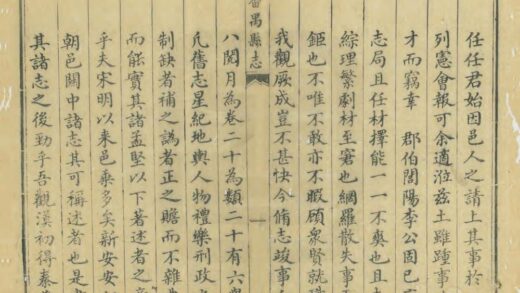 任任君始因邑人之請上其事於
列憲會報可余適涖茲土雖踵事
才而竊幸 郡伯閭陽李公固已
志局且任材擇能一一不爽也且
綜理繁劇材至窘也網羅散失事
鉅也不唯不敢亦不暇顧衆賢就
我觀厥成豈不甚快今脩志竣事
番禺縣志
一
八閱月為卷二十為類二十有六
凡舊志星紀地輿人物禮樂刑政
制缺者補之譌者正之贍而不雜
而能實其諸孟堅以下著述者之
乎夫宋明以来邑乘多矣新安安
朝邑關中諸志其可稱述者也是
其諸志之後勁乎吾觀漢初得秦